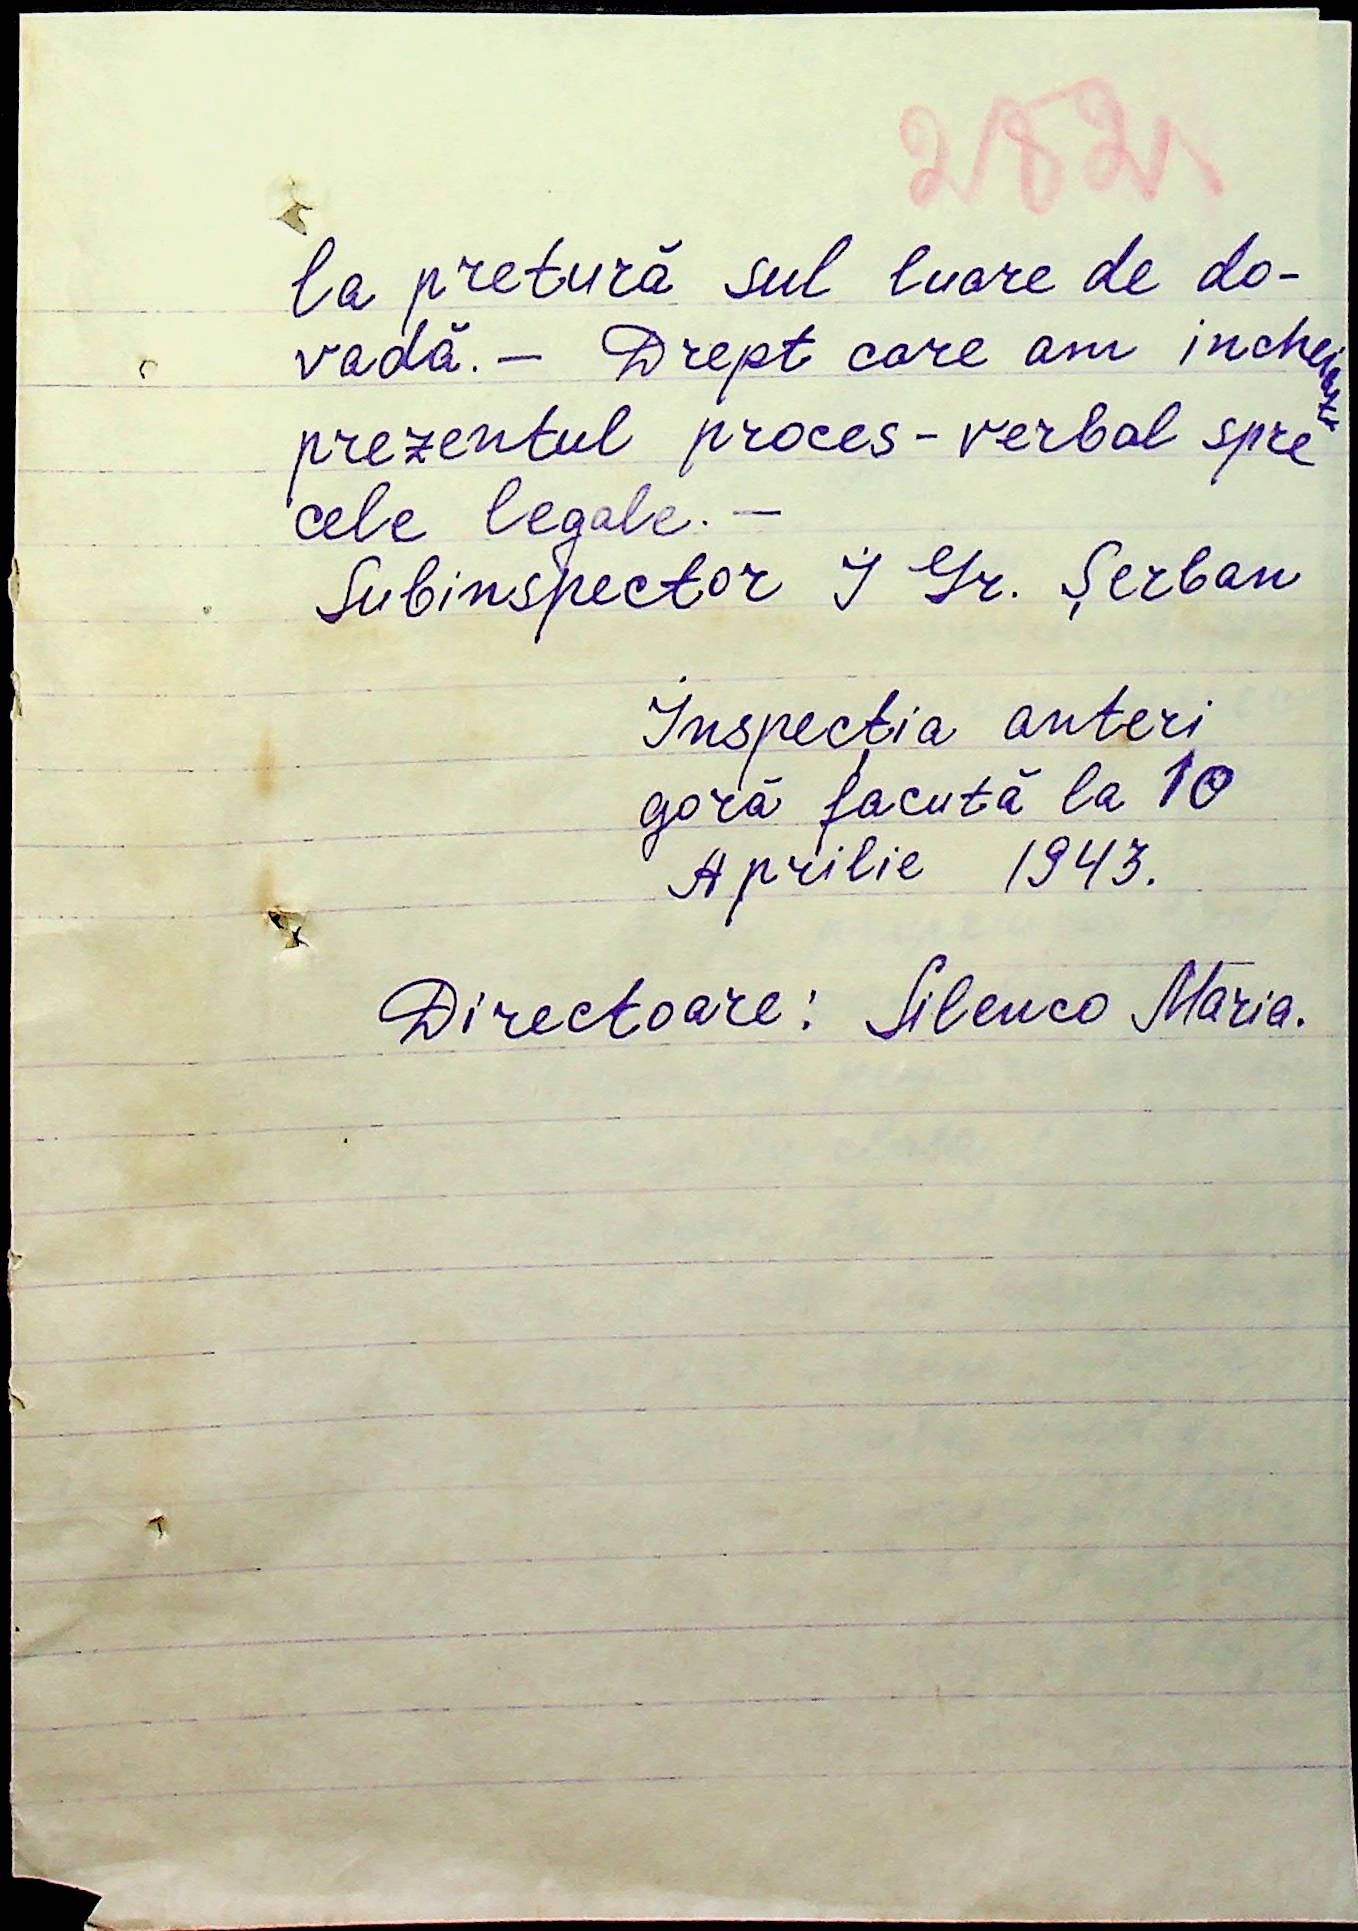 282.
la pretură sul luare de do-
vadă. — Drept care am incheiazt
prezentul proces-verbal spre
cele legale. —
Subinspector I Gr. Șerban
Inspecția anteri
goră facută la 10
Aprilie 1943.
Directoare: Silenco Maria.